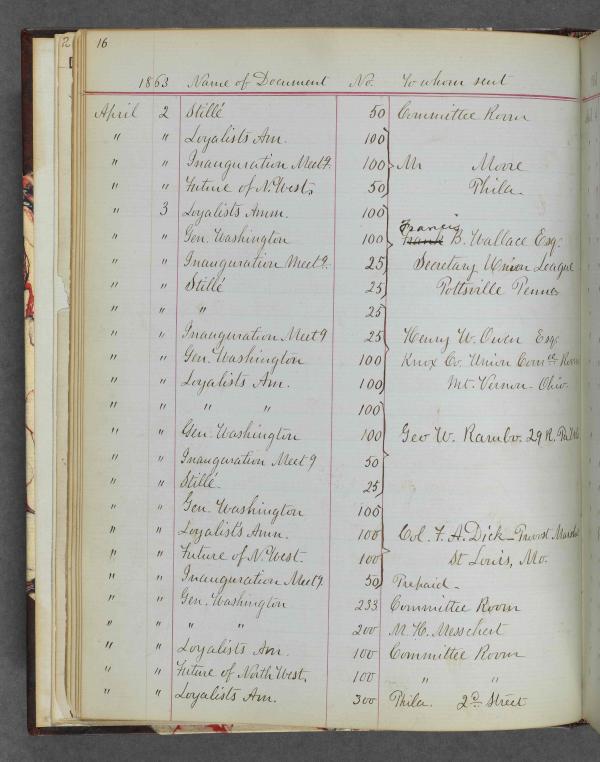 2
16
1863 Name of Document No. To whom sent
April 2 Stillé 50 Committee Room
" " Loyalists Am. 100
" " Inauguration Meetg. 100 Mr Moore
" " Future of N. West, 50 Phila
" 3 Loyalists Amm. 100
" " Gen. Washington 100 Francis Frank B. Wallace Esq.
" " Inauguration Meetg. 25 Secretary Union League
" " Stillé 25 Pottsville Penna
" " " 25
" " Inauguration Meetg 25 Henry W. Owen Esq.
" " Gen. Washington 100 Knox Co. Union Comee Room
" " Loyalists Am. 100 Mt. Vernon - Ohio.
" " " " 100
" " Gen. Washington 100 Geo W. Rambo. 29 R. Pa.
" " Inauguration Meetg 50
" " Stillé 25
" " Gen. Washington 100
" " Loyalists Amn. 100 Col. F. A. Dick - Provost Marshal
" " Future of N. West. 100 St Louis, Mo.
" " Inauguration Meetg. 50 Prepaid -
" " Gen. Washington 233 Committee Room
" " " " 200 M. H. Messchert
" " Loyalists Am. 100 Committee Room
" " Future of North West. 100 " "
" " Loyalists Am. 300 Phila. 2d. Street